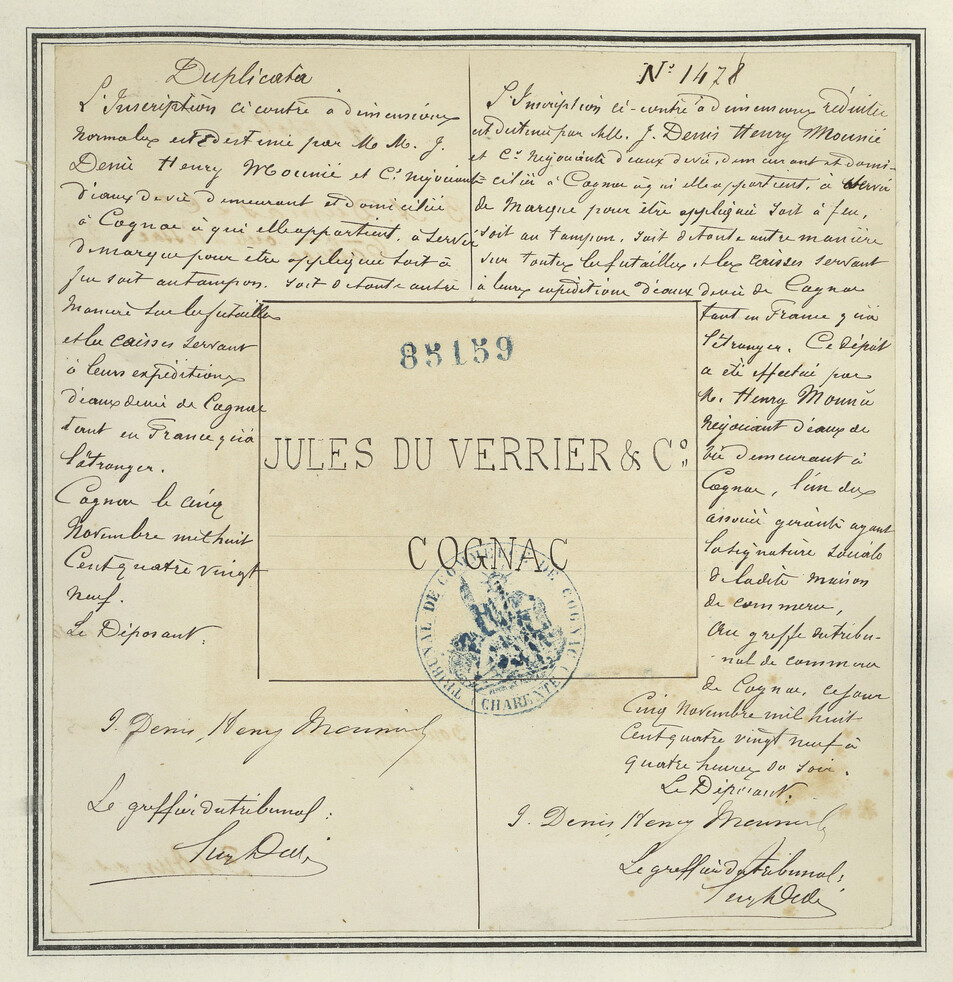 Duplicata
L'Inscription ci contre à dimensions
normales est destinée par M M. J.
Denis Henry Mounié et Cº négociants
d'eaux de vie demeurant et domiciliés
à Cognac à qui elle appartient, à servir
de marque pour être appliquée soit à
feu soit au tampon. soit de toute autre
manière sur les futailles
et les caisses servant
à leurs expéditions
d'eaux de vie de Cognac
tant en France qu'à
l'étranger.
Cognac le cinq
Novembre mil huit
Cent quatre vingt
neuf.
Le Déposant:
J. Denis, Henry Mounié
Le greffier du tribunal:
Nº 1478
L'Inscription ci-contre à dimensions réduites
est destinée par MM. J. Denis Henry Mounié
et Cº négociants d'eaux de vie, demeurant et domi-
ciliés à Cognac à qui elle appartient, à servir
de Marque pour être appliquée soit à feu,
soit au tampon, soit de toute autre manière
sur toutes les futailles et les caisses servant
à leurs expéditions d'eaux de vie de Cognac
tant en France qu'à
l'étranger. Ce dépôt
a été effectué par
M. Henry Mounié
négociant d'eaux de
vie demeurant à
Cognac, l'un des
associés gérants ayant
la signature sociale
de la dite maison
de commerce,
Au greffe du tribu-
nal de commerce
de Cognac, ce jour
Cinq Novembre mil huit
Cent quatre vingt neuf à
quatre heures du soir.
Le Déposant:
J. Denis, Henry Mounié
Le greffier du tribunal:
85159
JULES DU VERRIER & Cº
COGNAC
TRIBUNAL DE COMMERCE DE COGNAC
(CHARENTE)